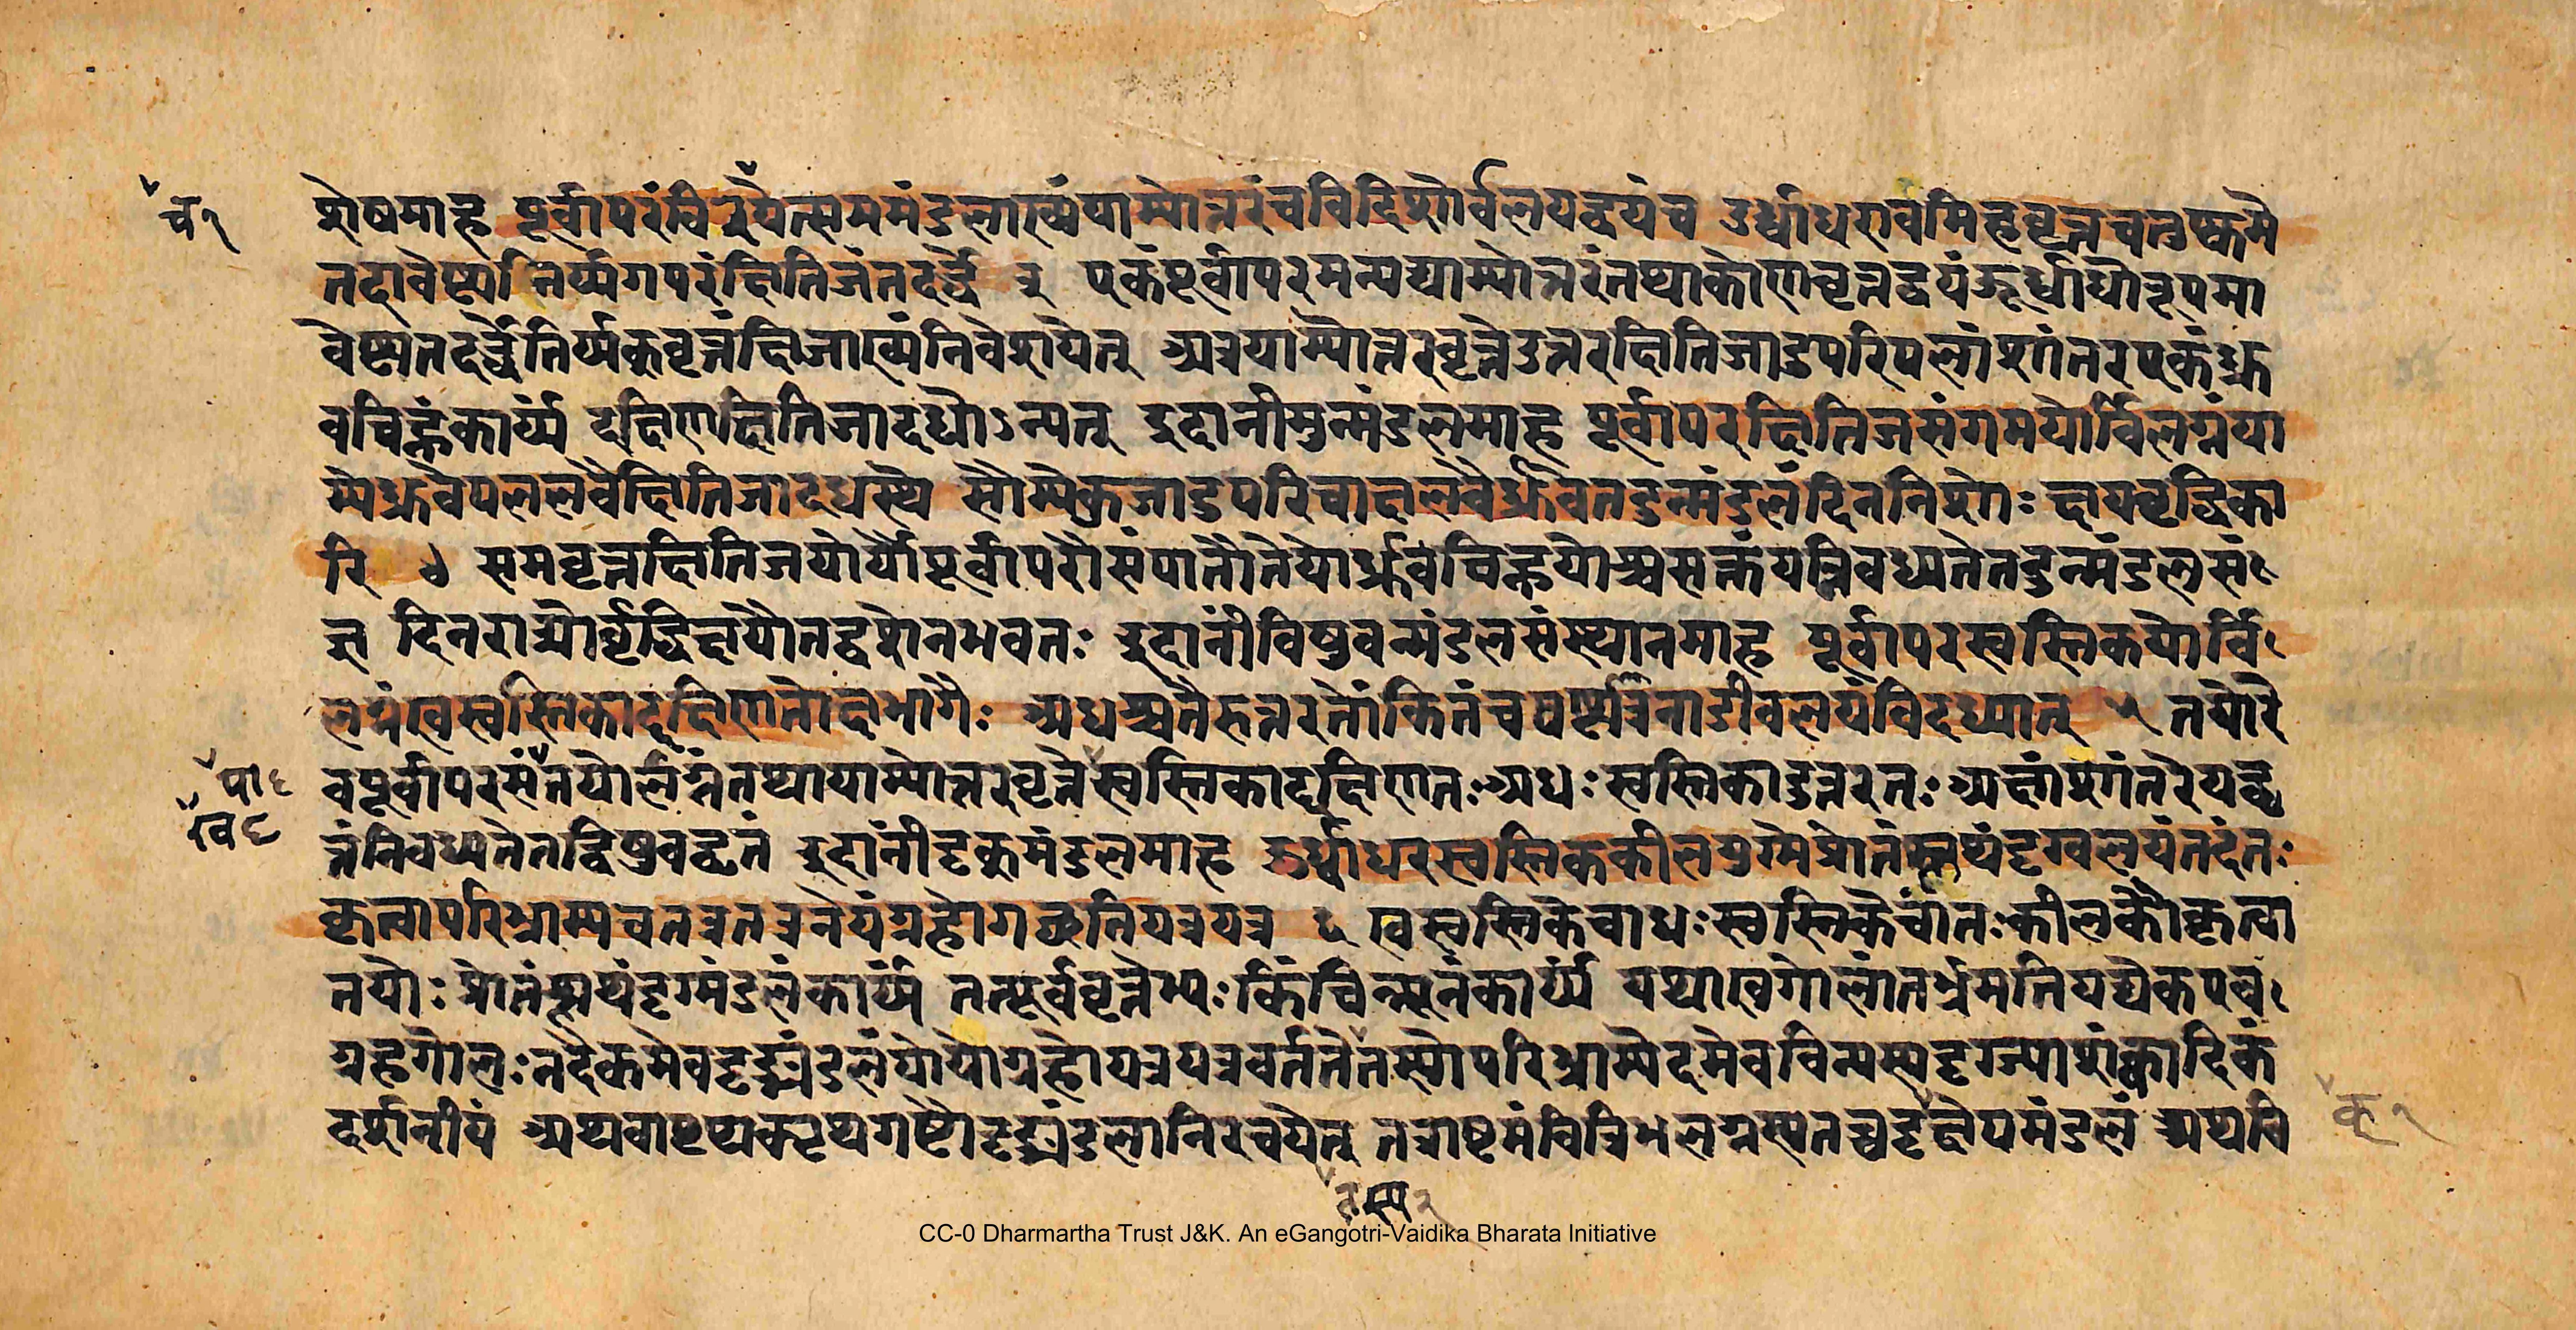 च१
शेषमाह पूर्वापरं विरयेत्सममंडलाख्यं याम्योत्तरं च विदिशोर्वलयद्वयं च ऊर्ध्वाधरावमिहवृत्तचतुष्कमे
तदावेष्ट्य तिर्य्यगपरं क्षितिजं तदर्द्धे ३ एकं पूर्वापरमन्यद्याम्योत्तरं तथा कोणवृत्तद्वयं ऊर्ध्वाधोरूपमा
वेष्ट्य तदर्द्धे तिर्य्यक्वृत्तं क्षिजाख्यं निवेशयेत् अत्र याम्योत्तरवृत्ते उत्तरक्षितिजाडपरि पलांशांतर एकं ध्रु
वचिह्नं कार्य्यं दक्षिणक्षितिजादधोऽन्यत् इदानीमुन्मंडलमाह पूर्वापरक्षितिजसंगमयोर्विलग्नं या
म्ये ध्रुवे पललवैः क्षितिजादधस्थे सौम्ये कुजाडपरि चाक्षलवैर्ध्रुवे तडन्मंडलं दिननिशोः क्षयवृद्धिका
रि ४ समवृत्तक्षितिजयोर्यौ पूर्वापरौ संपातौ तयोर्ध्रुवचिह्नयोश्च सक्तं यन्निबध्यते तडन्मंडलसं
ज्ञ दिनरात्र्योर्वृद्धिक्षयौ तद्वशेन भवतः इदानीं विषुवन्मंडलसंस्थानमाह पूर्वापरस्वस्तिकयोर्वि
लग्नं खस्वस्तिकाद्दक्षिणतोक्षभागैः अधश्च तैरुत्तरतोंकितं च षष्ट्यात्र नाडीवलयं विदध्यात् ५ तयोरे
पा९
व पूर्वापरसंतयोर्लग्नं तथा याम्योत्तरवृत्ते स्वस्तिकाद्दक्षिणतः अधः स्वस्तिकाडत्तरतः अक्षांशांतरे यद्वृ
ख९
त्तं निबध्यते तद्विषुवद्वृत्तं इदानीं दृक्मंडलमाह ऊर्ध्वाधरस्वस्तिककीलयुग्मे प्रोतं श्लथं दृग्वलयं तदंतः
कृत्वा परिभ्राम्य च तत्र तत्र नेयं ग्रहो गच्छति यत्र यत्र ६ खस्वस्तिके वाधः स्वस्तिके चांतः कीलकौ कृत्वा
तयोः प्रोतं श्लथं दृग्मंडलं कार्य्यं तत्पूर्ववृत्तेभ्यः किंचिन्न्यूनं कार्य्यं यथा खगोलांतर्भ्रमति यद्येक एव
ग्रहगोलः तदैकमेव दृङ्मंडलं यो यो ग्रहो यत्र यत्र वर्तते तस्योपरि भ्राम्येदमेव विन्यस्य दृग्ज्याशंक्वादिकं
दर्शनीयं अथवा पृथक्पृथगष्टौ दृङ्मंडलानि रचयेत् तत्राष्टमं वित्रिभलग्नस्य तच्च दृक्षेपमंडलं अथ वि
क्१
CC-0 Dharmartha Trust J&K. An eGangotri-Vaidika Bharata Initiative